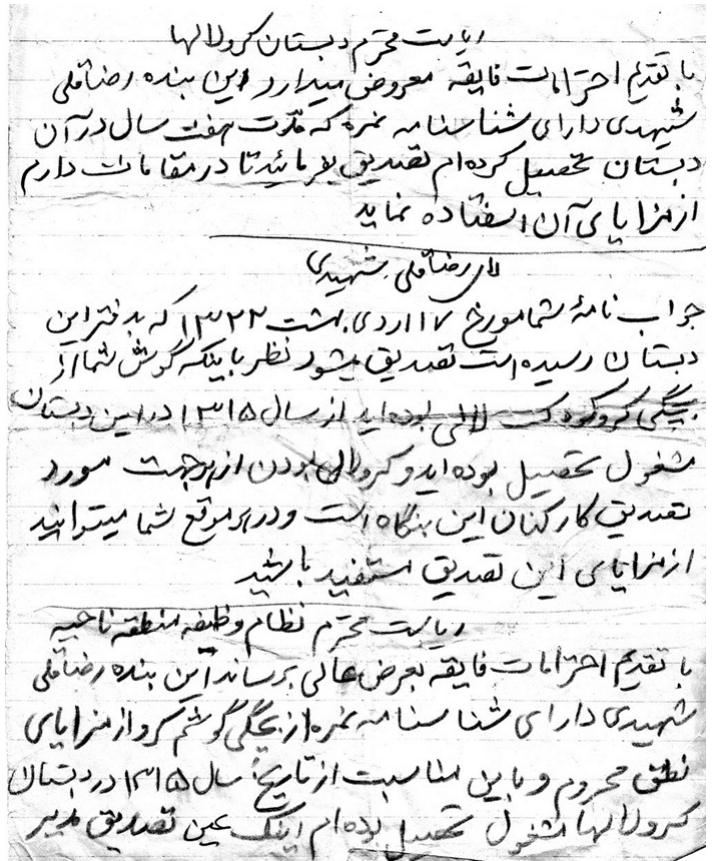 ریاست محترم دبستان کرولالها
با تقدیم احترامات فایقه معروض میدارد این بنده رضاقلی
شهیدی دارای شناسنامه نمره که مدت هفت سال در آن
دبستان تحصیل کرده‌ام تصدیق بفرمائید تا در مقامات دارم
از مزایای آن استفاده نماید
رضاقلی شهیدی
جواب نامهٔ شما مورخ ۱۷ اردی بهشت ۱۳۲۲ که بدفتر این
دبستان رسیده است تصدیق میشود نظر باینکه گوش شما از
بچگی کر و لال بوده‌اید از سال ۱۳۱۵ در این دبستان
مشغول تحصیل بوده‌اید و کرولال بودن از هر جهت مورد
تصدیق کارکنان این بنگاه است و در هر موقع شما میتوانید
از مزایای این تصدیق مستفید باشید
ریاست محترم نظام وظیفه منطقه ناحیه
با تقدیم احترامات فایقه بعرض عالی برساند این بنده رضاقلی
شهیدی دارای شناسنامه نمره از بچگی گوشم کر و از مزایای
نطق محروم و باین مناسبت از تاریخ سال ۱۳۱۵ در دبستان
کرولالها مشغول تحصیل بوده‌ام اینک عین تصدیق مدیر